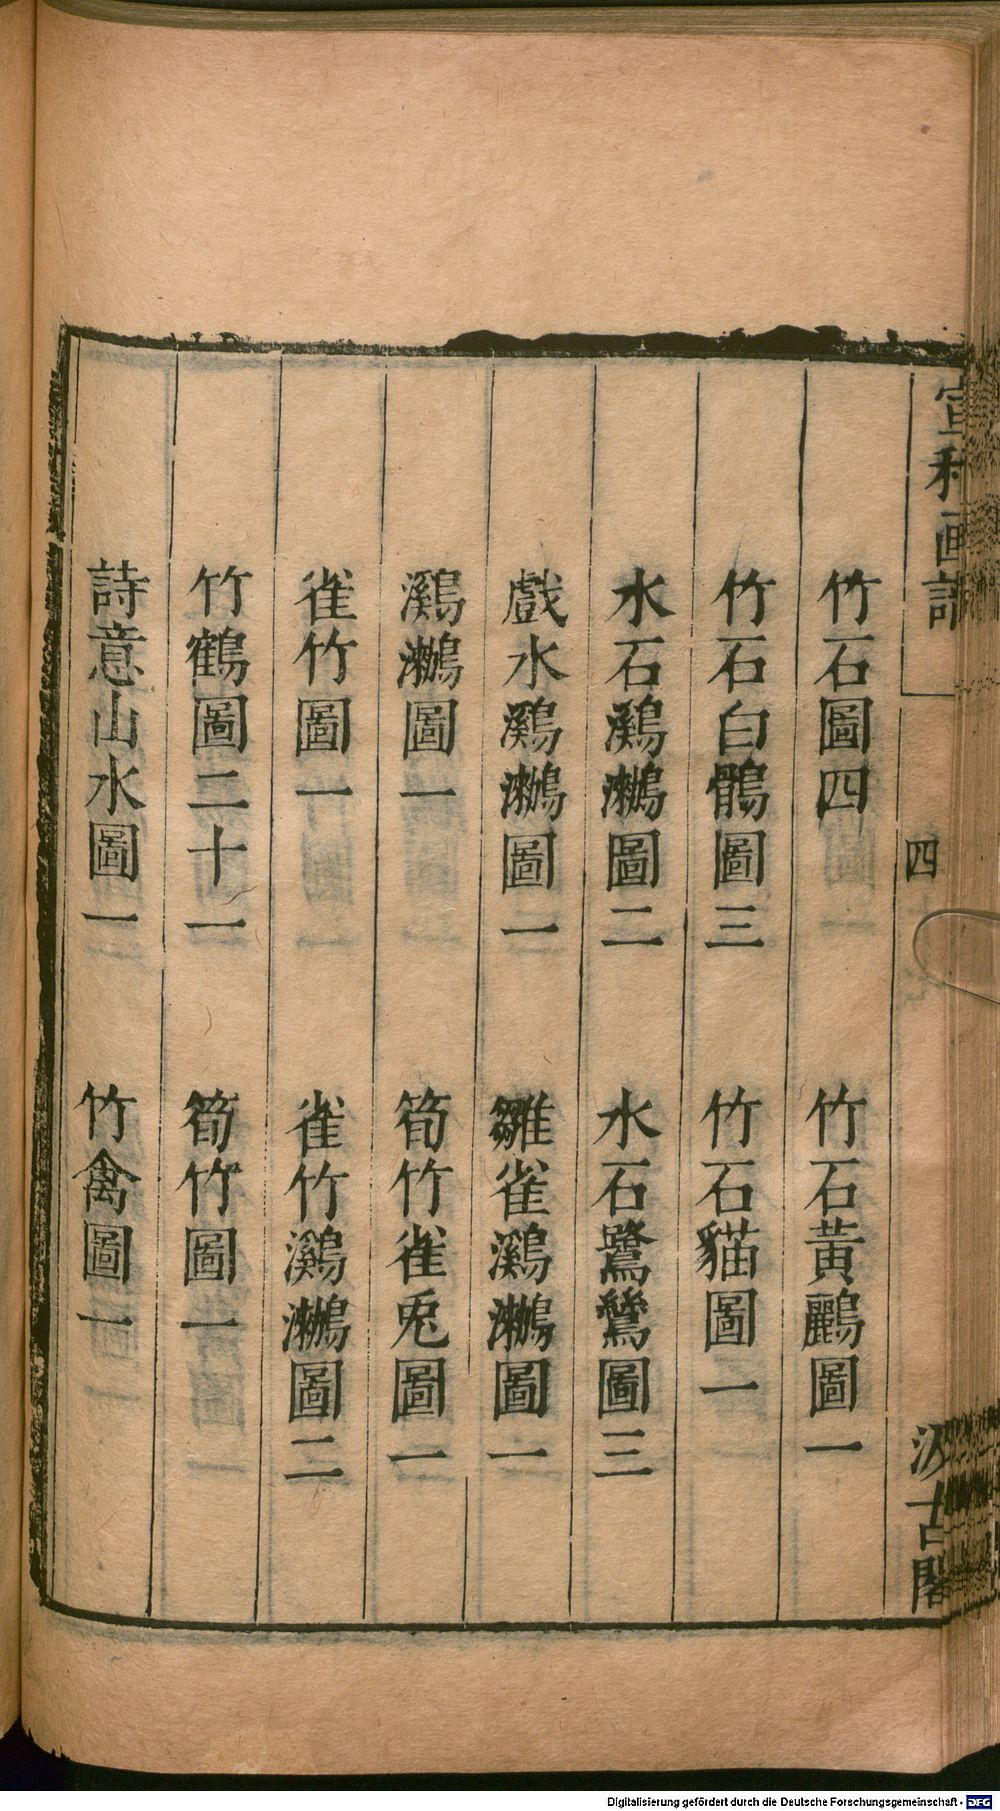 宣和画譜
四
汲古閣
竹石圖四　竹石黃鸝圖一
竹石白鷳圖三　竹石貓圖一
水石鸂鷘圖二　水石鷺鶿圖三
戲水鸂鷘圖一　雛雀鸂鷘圖一
鸂鷘圖一　筍竹雀兎圖一
雀竹圖一　雀竹鸂鷘圖二
竹鶴圖二十一　筍竹圖一
詩意山水圖一　竹禽圖一
Digitalisierung gefördert durch die Deutsche Forschungsgemeinschaft - DFG